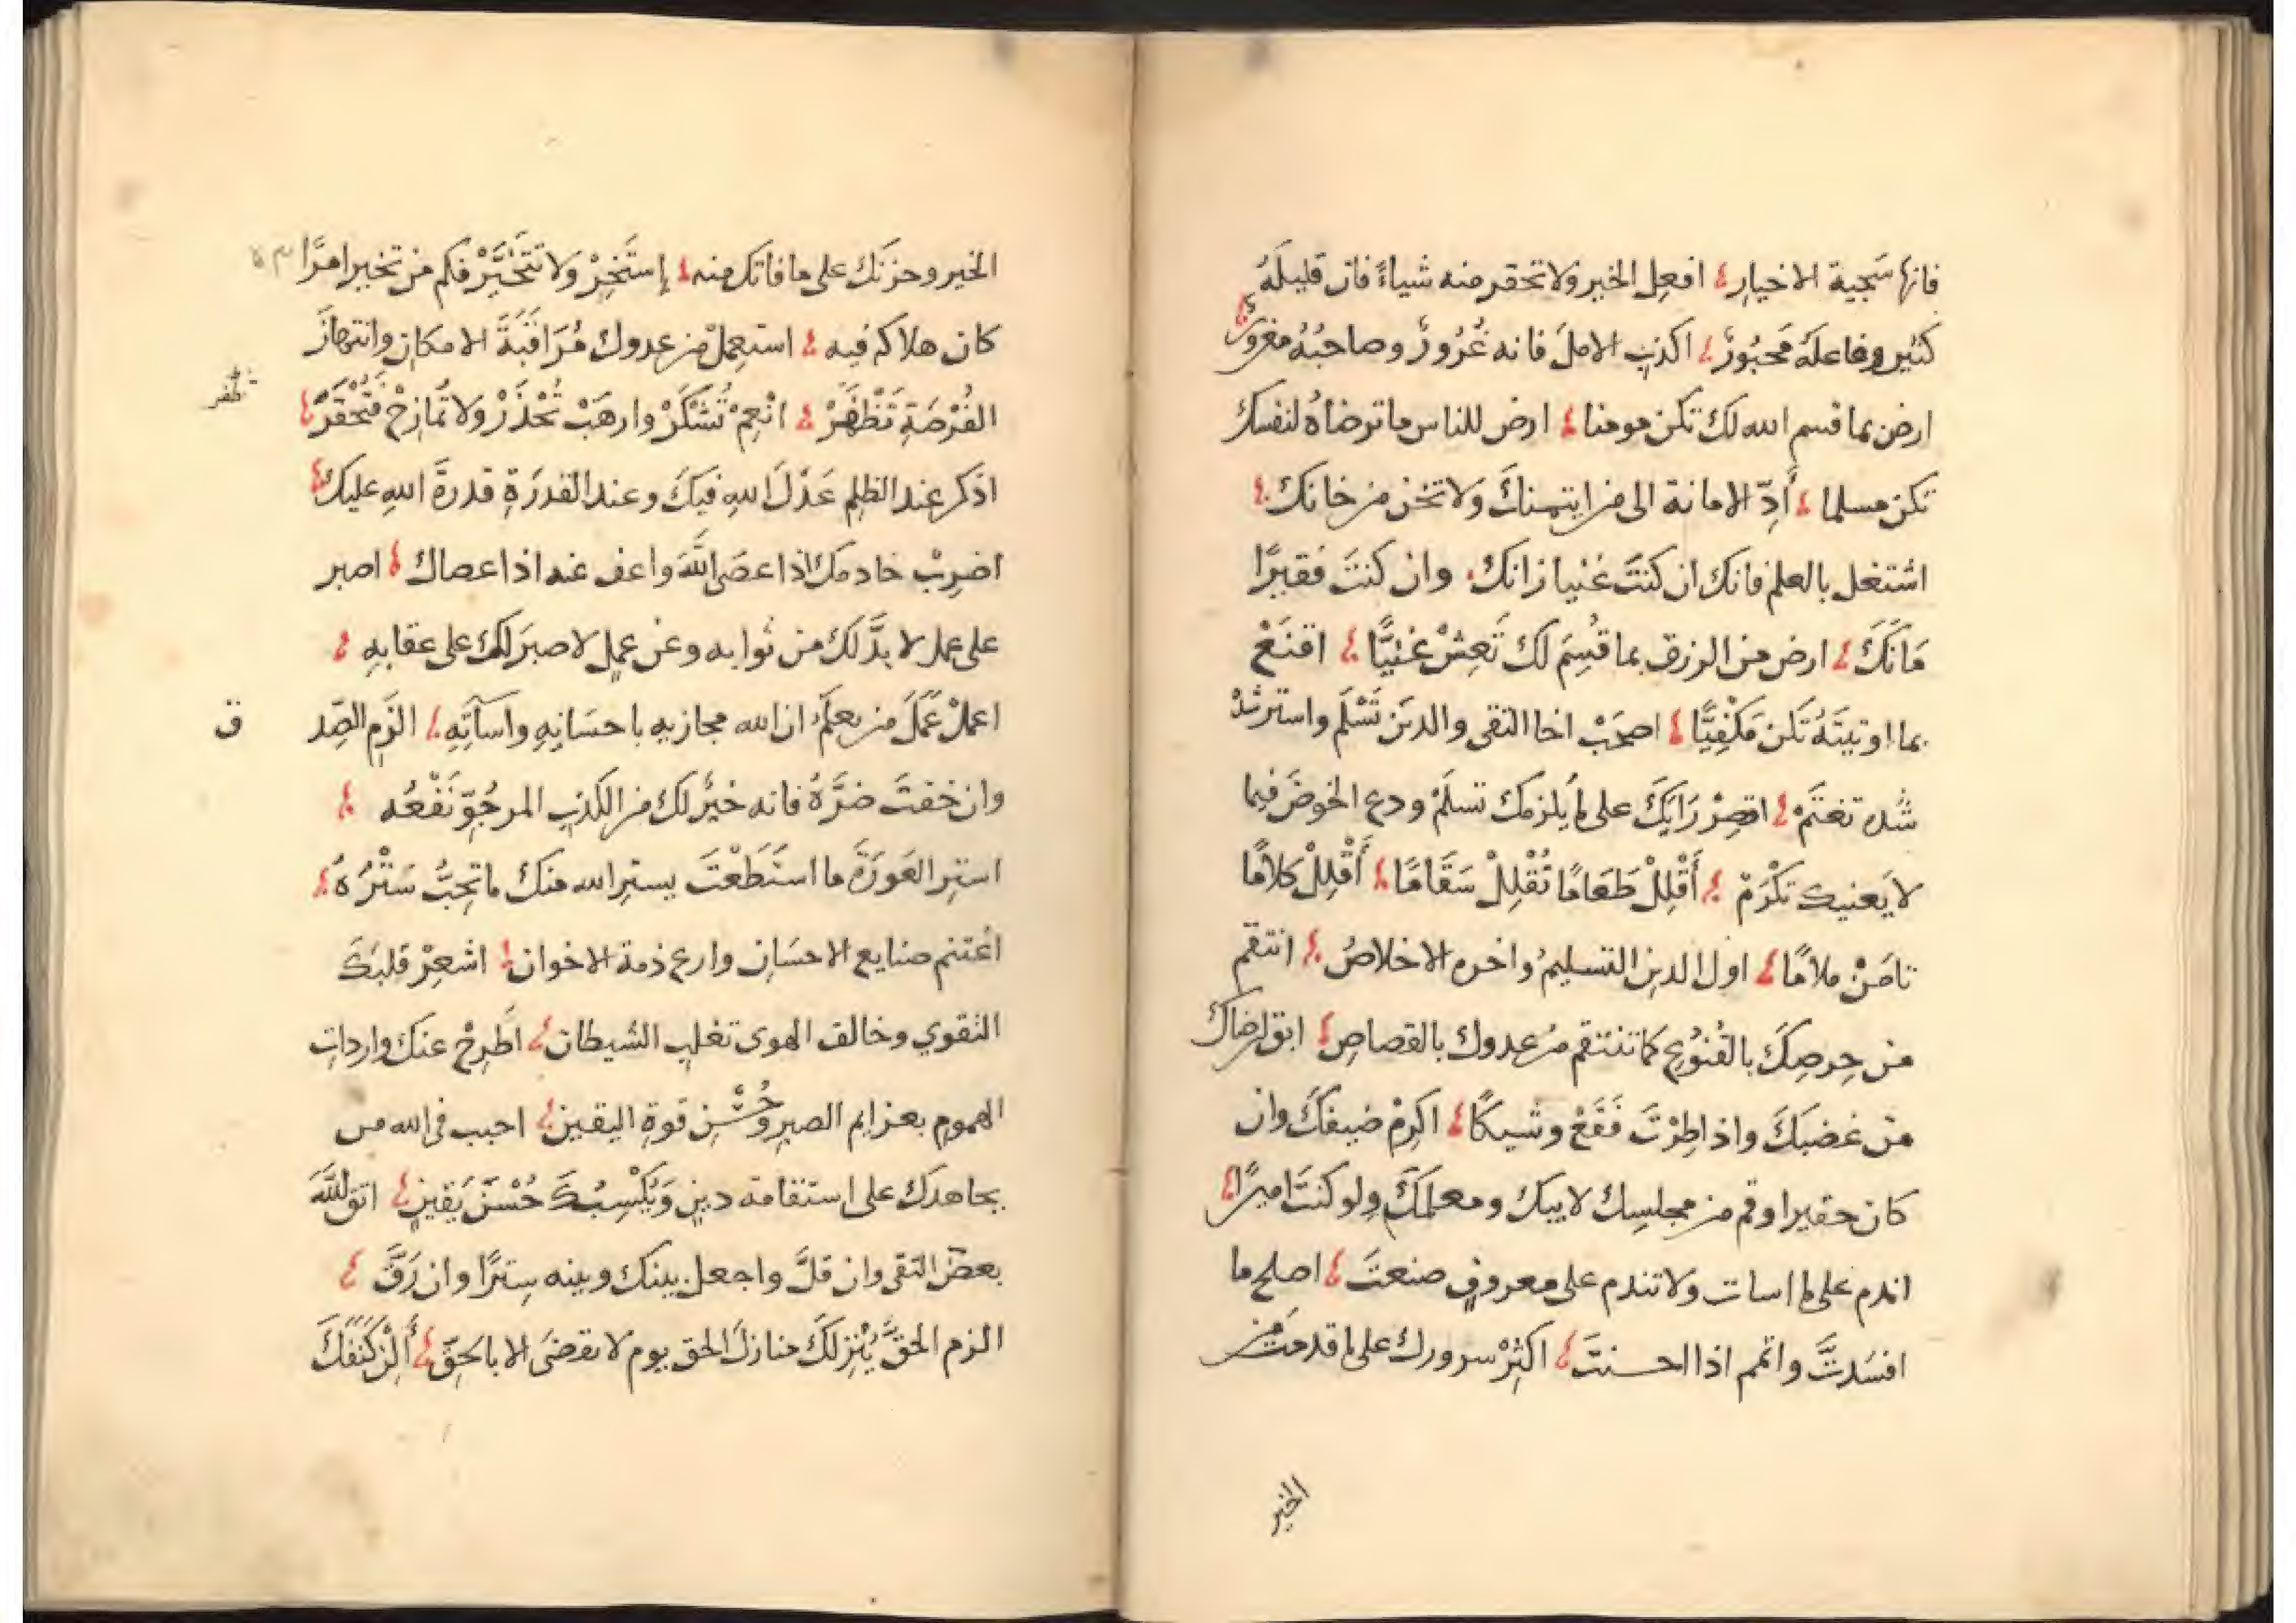 فانها سَجية الاخيارِ افعِل الخير ولا تحقر منه شياءً فان قليلَهُ
كثير وفاعلَهُ مَحبُورٌ اكذبِ الاملَ فانه غُرُورٌ وصاحبُهُ مغرورٌ
ارض بما قسم الله لك تكن مومنا ارض للناس ما ترضاهُ لنفسك
تكن مسلما أَدِّ الامانة الى من ايتمنكَ ولا تخن من خانك
اشتغل بالعلم فانك ان كنتَ غنيا زانك وان كنتَ فقيرًا
مَانَكَ ارض من الرزق بما قُسِمَ لك تَعِشْ غنيًّا اقنَعْ
بما اوتيتَهُ تكن مَكْفِيًّا اصحَبْ اخا التقى والدين تَسْلَم واسترشدْ
شده تغتَمْ اقصِرْ رَايَكَ على ما يلزمك تسلَمْ ودع الخوضَ فيما
لا يَعنيك تكْرَمْ أَقْلِلْ طَعَامًا تُقْلِلْ سَقَامًا أَقْلِلْ كلامًا
تامَنْ ملامًا اول الدينِ التسليمُ واخره الاخلاصُ انتقم
من حِرصِكَ بالقُنُوعِ كما تنتقم من عدوك بالقصاصِ ابق لرضاك
من غضبكَ واذا طِرْتَ فَقَعْ وشيكًا اكرِمْ ضيفَكَ وان
كان حقيرا وقم من مجلسِك لابيك ومعلمكَ ولو كنتَ اميرًا
اندم على ما اسات ولا تندم على معروفٍ صنعتَ اصلح ما
افسَدتَّ واتمم اذا احسنتَ اكثِرْ سرورك على ما قدمتَ من
الخير
الخير وحزنَك على ما فاتك منه إستَخِرْ ولا تتَخَيَّرْ فكم من تخير امرًا
كان هلاكه فيه استعمِلْ من عدوك مُرَاقَبَةَ الامكانِ وانتهازَ
الفُرْصَةِ تَظْفَرْ انْعِمْ تُشْكَرْ وارهَبْ تُحْذَرْ ولا تُمازِحْ فتُحْقَرْ
تظفر
اذكر عند الظلم عَدْلَ اللهِ فيكَ وعند القدرَةِ قدرةَ اللهِ عليك
اضرِبْ خادمك اذا عصَى اللهَ واعف عنه اذا عصاك اصبر
على عمل لا بدَّ لك من ثوابه وعن عملٍ لا صبرَ لك على عقابهِ
اعملْ عَمَلَ من يعلَمُ ان الله مجازيهِ باحسَانِهِ واسآتِهِ الزَمِ الصِّد
ق
وان خفتَ ضرَّهُ فانه خيرٌ لك من الكذبِ المرجُوِّ نَفْعُه
استرِ العَورَةَ ما استَطَعْتَ يسترِ الله منك ما تحِبُّ سَتْرُهُ
اغتنم صنايع الاحسَانِ وارع ذمة الاخوان اشعِرْ قلبَكَ
التقوي وخالف الهوى تغلب الشيطان اطَّرِحْ عنك وارداتِ
الهمومِ بعزايم الصبرِ وحُسْنِ قوةِ اليقين احبب فى الله من
يجاهدك على استقامة دينٍ وَيُكْسِبُكَ حُسْنَ يَقينٍ اتق اللهَ
بعضَ التقى وان قلَّ واجعل بينك وبينه سِترًا وان رَقَّ
الزم الحقَّ يُنْزِلكَ منازلَ الحق يوم لا يقضَى الا بالحَقِّ أَلِنْ كَنَفَكَ